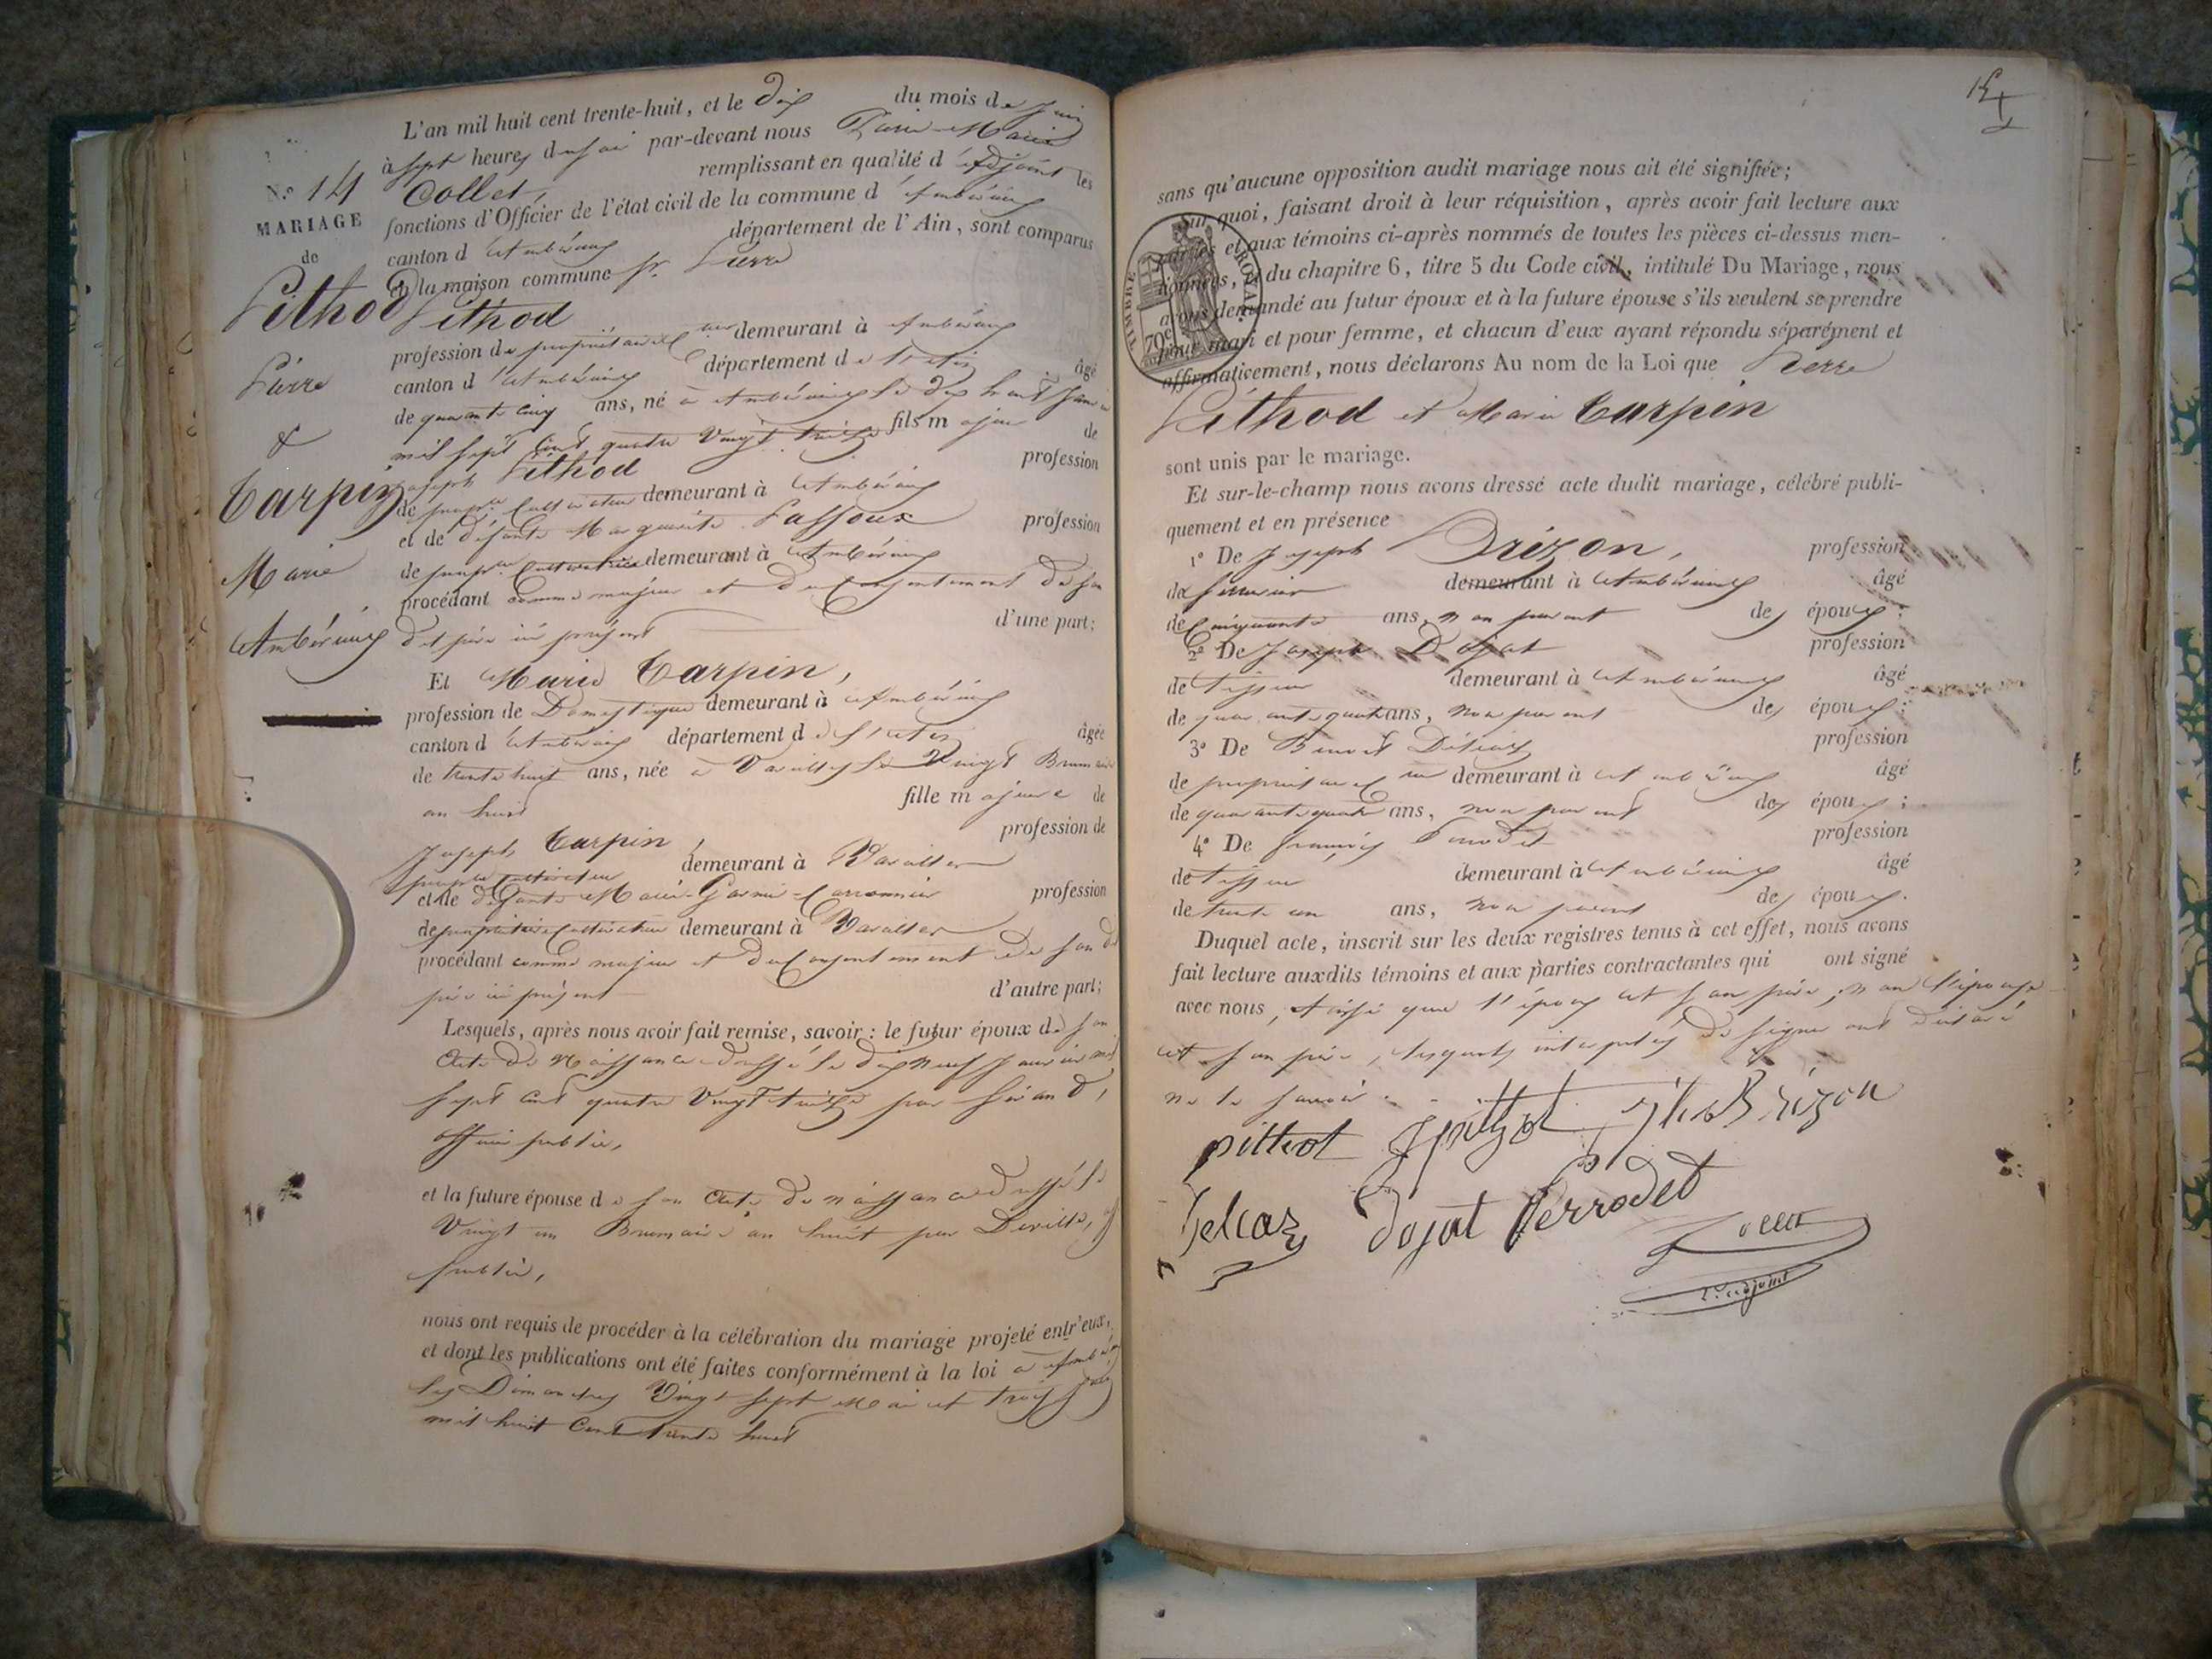 L'an mil huit cent trente-huit, et le dix du mois de Juin
à sept heures du soir par-devant nous Marie
Collet, remplissant en qualité d'Adjoint les
fonctions d'Officier de l'état civil de la commune d'Ambérieux
canton d'Ambérieux département de l'Ain, sont comparus
en la maison commune Sr. Pierre
Pithod
profession de propriétaire demeurant à Ambérieux
canton d'Ambérieux département de l'Ain âgé
de quarante cinq ans, né à Ambérieux le dix huit Janvier
mil sept cent quatre vingt treize fils majeur de
Joseph Pithod profession
de propre. Cultivateur demeurant à Ambérieux
et de défunte Marguerite profession
de propre. Cultivatrice demeurant à Ambérieux
procédant comme majeur et du consentement de son
dit père ici présent d'une part;
N.o 14
MARIAGE
de
Pithod
Pierre
&
Carpin
Marie
Ambérieux
Et Marie Carpin,
profession de Domestique demeurant à Ambérieux
canton d'Ambérieux département de l'Ain âgée
de trente huit ans, née à le vingt Brumaire
an huit fille majeure de
Joseph Carpin, profession de
propre. Cultivateur demeurant à
et de défunte Marie profession
de propriétaire Cultivatrice demeurant à
procédant comme majeure et du consentement de son dt
père ici présent d'autre part;
Lesquels, après nous avoir fait remise, savoir: le futur époux de son
acte de Naissance dressé le dix neuf Janvier mil
sept cent quatre vingt treize par
officier public,
et la future épouse de son acte de naissance dressé le
Vingt un Brumaire an huit par Deville, off
public,
nous ont requis de procéder à la célébration du mariage projeté entr'eux,
et dont les publications ont été faites conformément à la loi à Ambér
les Dimanches Vingt sept Mai et trois Juin
mil huit Cent trente huit
sans qu'aucune opposition audit mariage nous ait été signifiée;
Sur quoi, faisant droit à leur réquisition, après avoir fait lecture aux
parties et aux témoins ci-après nommés de toutes les pièces ci-dessus men-
tionnées, et du chapitre 6, titre 5 du Code civil, intitulé Du Mariage, nous
avons demandé au futur époux et à la future épouse s'ils veulent se prendre
pour mari et pour femme, et chacun d'eux ayant répondu séparément et
affirmativement, nous déclarons Au nom de la Loi que Pierre
Pithod et Marie Carpin
TIMBRE ROYAL
70c
sont unis par le mariage.
Et sur-le-champ nous avons dressé acte dudit mariage, célébré publi-
quement et en présence
1o De Joseph Brézon, profession
de demeurant à Ambérieux âgé
de Cinquante ans, non parent des époux;
2o De Joseph Dojat profession
de Tisseur demeurant à Ambérieux âgé
de quarante quatre ans, non parent des époux;
3o De Benoit profession
de propriétaire demeurant à Ambérieux âgé
de quarante quatre ans, non parent des époux;
4o De François Perrodet profession
de Tisseur demeurant à Ambérieux âgé
de trente un ans, non parent des époux.
Duquel acte, inscrit sur les deux registres tenus à cet effet, nous avons
fait lecture auxdits témoins et aux parties contractantes qui ont signé
avec nous, Ainsi que l'époux et son père, non l'épouse
et son père, lesquels interpelés de signer ont déclaré
ne le savoir.
pithot Jpithot Brézon
Delcaz Dojat Perrodet
Collet
adjoint